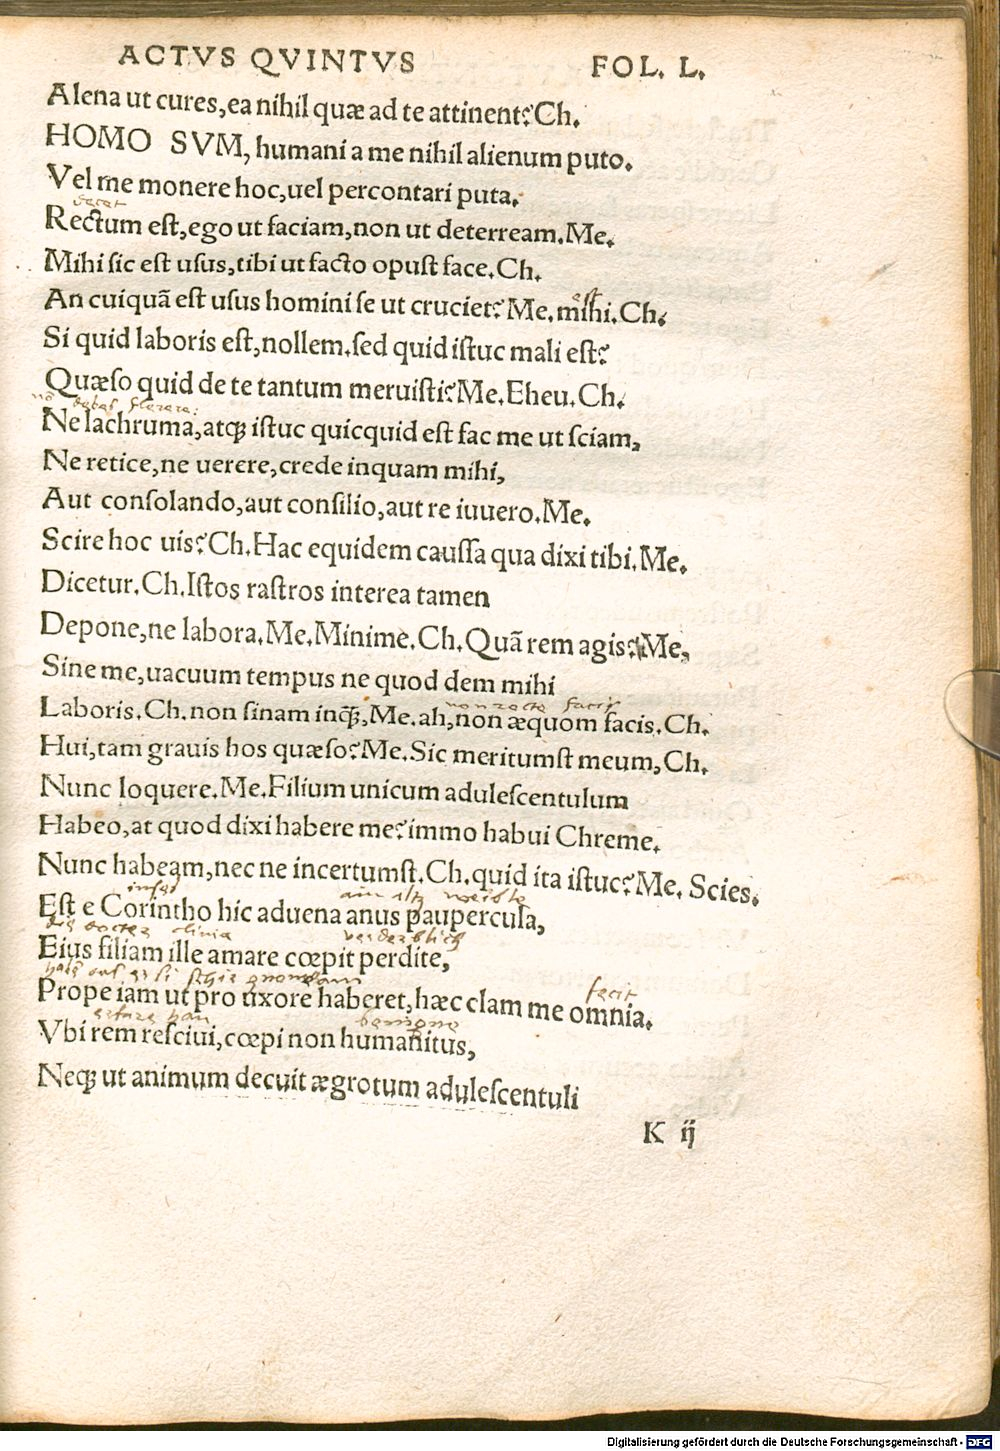 ACTVS QVINTVS FOL. L.
Alena ut cures,ea nihil quæ ad te attinent? Ch.
HOMO SVM, humani a me nihil alienum puto.
Vel me monere hoc,uel percontari puta.
Rectum est,ego ut faciam,non ut deterream.Me.
Mihi sic est usus,tibi ut facto opust face.Ch.
est
An cuiquā est usus homini se ut cruciet? Me.mihi.Ch.
Si quid laboris est,nollem.sed quid istuc mali est?
Quæso quid de te tantum meruisti? Me.Eheu.Ch.
Ne lachruma,atq; istuc quicquid est fac me ut sciam,
Ne retice,ne uerere,crede inquam mihi,
Aut consolando,aut consilio,aut re iuuero.Me.
Scire hoc uis? Ch.Hac equidem caussa qua dixi tibi.Me.
Dicetur.Ch.Istos rastros interea tamen
Depone,ne labora.Me.Minime.Ch.Quā rem agis? Me,
Sine me,uacuum tempus ne quod dem mihi
non recte facis
Laboris.Ch.non sinam inq̃,Me.ah,non æquom facis.Ch.
Hui,tam grauis hos quæso? Me.Sic meritumst meum,Ch.
Nunc loquere.Me.Filium unicum adulescentulum
Habeo,at quod dixi habere me? immo habui Chreme.
Nunc habeam,nec ne incertumst.Ch.quid ita istuc? Me. Scies.
Est e Corintho hic aduena anus paupercula,
Eius filiam ille amare cœpit perdite,
facit
Prope iam ut pro uxore haberet,hæc clam me omnia.
Vbi rem resciui,cœpi non humanitus,
Neq; ut animum decuit ægrotum adulescentuli
K ij
Digitalisierung gefördert durch die Deutsche Forschungsgemeinschaft - DFG